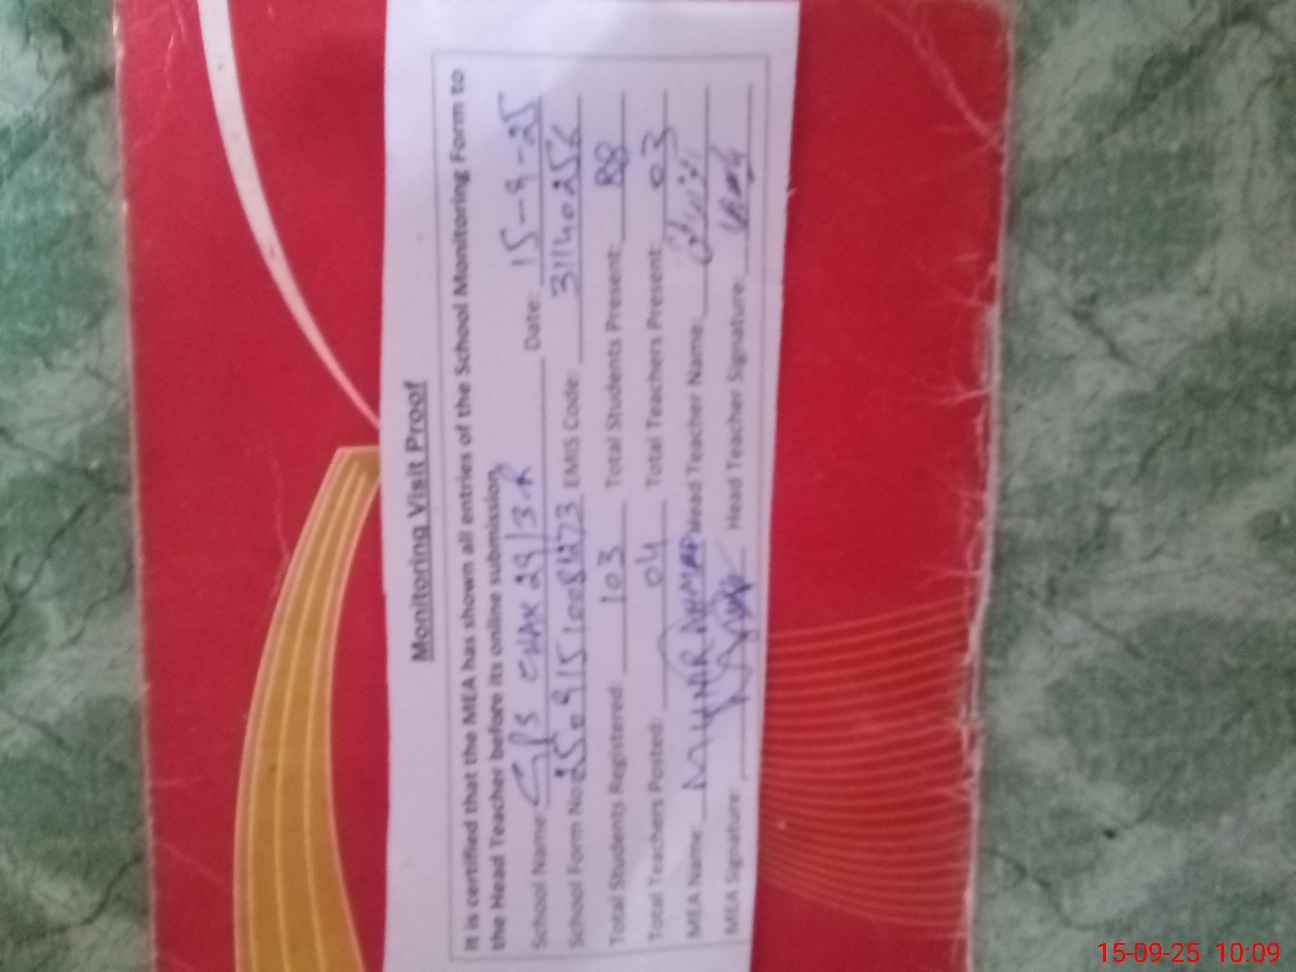 Monitoring Visit Proof
It is certified that the MEA has shown all entries of the School Monitoring Form to
the Head Teacher before its online submission.
School Name: GPS CHAK 29/3R Date: 15-9-25
School Form No: EMIS Code: 31140256
Total Students Registered: 103 Total Students Present: 88
Total Teachers Posted: 04 Total Teachers Present: 03
MEA Name: MUNIR AHMAD Head Teacher Name:
MEA Signature: Head Teacher Signature:
15-09-25 10:09